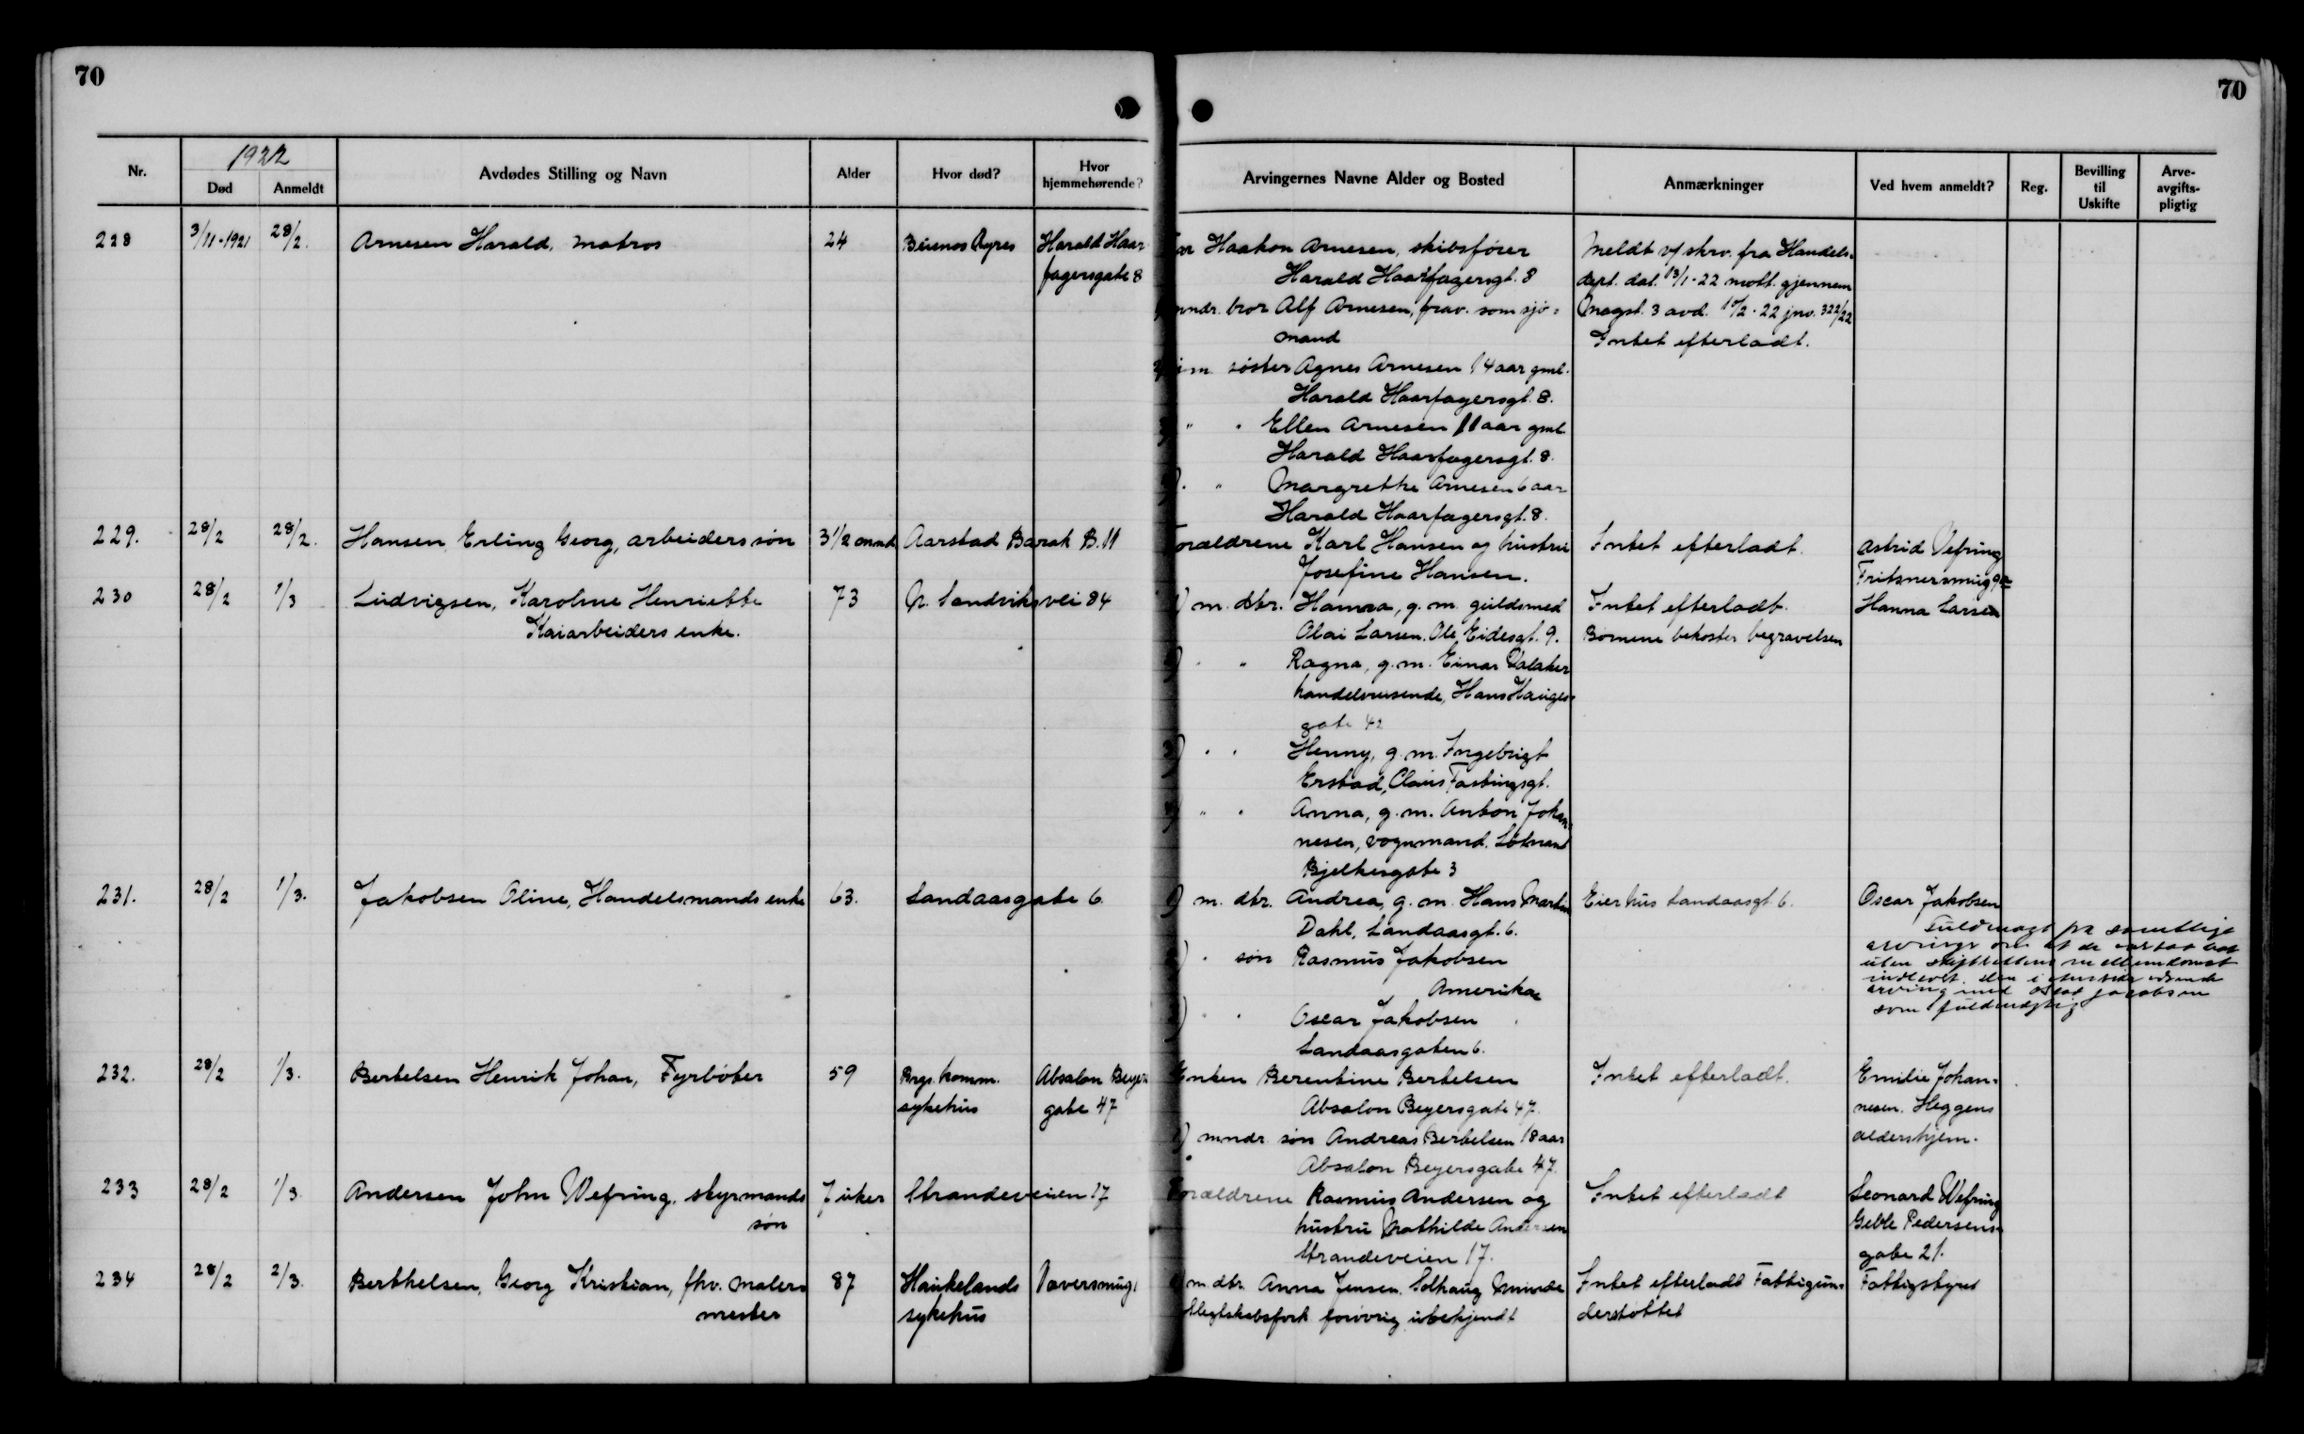 70
70
Nr.
1922
Død
Anmeldt
Avdødes Stilling og Navn
Alder
Hvor død?
Hvor hjemmehørende?
Arvingernes Navne Alder og Bosted
Anmærkninger
Ved hvem anmeldt?
Reg.
Bevilling til Uskifte
Arve-avgifts-pligtig
228 3/11-1921 28/2. Arnesen Harald, matros 24 Buenos Ayres Harald Haar
fagersgate 8
Haakon Arnesen, skibsfører
Harald Haarfagersgt. 8
mndr. bror Alf Arnesen, frav. som sjö=
mand
søster Agnes Arnesen 14 aar gml.
Harald Haarfagersgt. 8.
" " Ellen Arnesen 11 aar gml
Harald Haarfagersgt. 8.
" " Margrethe Arnesen 6 aar
Harald Haarfagersgt. 8.
Meldt v/ skrv. fra Handels=
dept. dat. 13/1-22 mott. gjennem
Magst. 3 avd. 10/2-22 jnr. 322/22
Intet efterladt.
229. 28/2 28/2. Hansen, Erling Georg, arbeiders søn 3 1/2 mnd Aarstad Barak B. 11
Forældrene Karl Hansen og hustru
Josefine Hansen.
Intet efterladt.
Astrid Vefring
Fritznersmug
230 28/2 1/3 Ludvigsen, Karoline Henriette
Kaiarbeiders enke.
73 Gr. Sandviksvei 84
1) m. dtr. Hanna, g. m. guldsmed
Olai Larsen. Ole Eidesgt. 9.
" Ragna, g. m. Einar Valaker
handelsreisende, Hans Hauges=
gate 42
3) " " Henny, g. m. Ingebrigt
Erstad, Claus Fastingsgt.
" " Anna, g. m. Anton Johan=
nesen, vognmand. Løtnant
Bjelkesgate 3
Intet efterladt.
Børnene bekoster begravelsen
Hanna Larsen
231. 28/2 1/3. Jakobsen Oline, Handelsmands enke 63. Landaasgate 6
1) m. dtr. Andrea, g. m. Hans Martin
Dahl, Landaasgt. 6.
" søn Rasmus Jakobsen
Amerika
" " Oscar Jakobsen
Landaasgaten 6.
Eier hus Landaasgt. 6.
Oscar Jakobsen
Fuldmagt fra samtlige
som fuldmægtig
232. 28/2 1/3. Bertelsen Henrik Johan, Fyrbøter 59 Brgs. komm.
sykehus
Absalon Beyers
gate 47
Enken Berentine Bertelsen
Absalon Beyersgate 47.
1) mndr. søn Andreas Bertelsen 18 aar
Absalon Beyersgate 47.
Intet efterladt.
Emilie Johan=
nesen. Heggens
aldershjem.
233 28/2 1/3 Andersen John Wefring, styrmands
søn
7 uker Strandeveien 17
Forældrene Rasmus Andersen og
hustru Mathilde Andersen
Strandeveien 17.
Intet efterladt
Leonard Wefring
Geble Pedersens
gate 21.
234 28/2 2/3. Berthelsen, Georg Kristian, fhv. Maler=
mester
87 Haukelands
sykehus
Vaversmug.
m. dtr. Anna Jensen. Solhaug Minde
slegtskabsforh. forøvrig ubekjendt
Intet efterladt Fattigun=
derstøttet
Fattigstyret